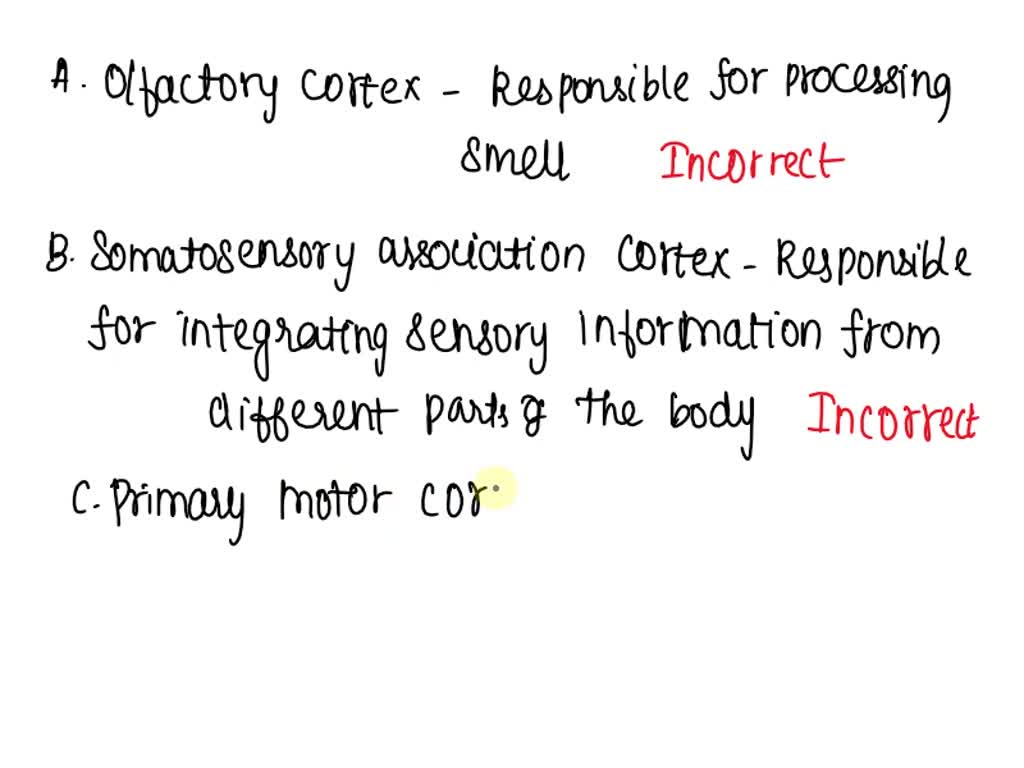 A. Olfactory cortex - Responsible for processing
smell Incorrect
B. Somatosensory association cortex - Responsible
for integrating sensory information from
different parts of the body Incorrect
C. Primary motor cor